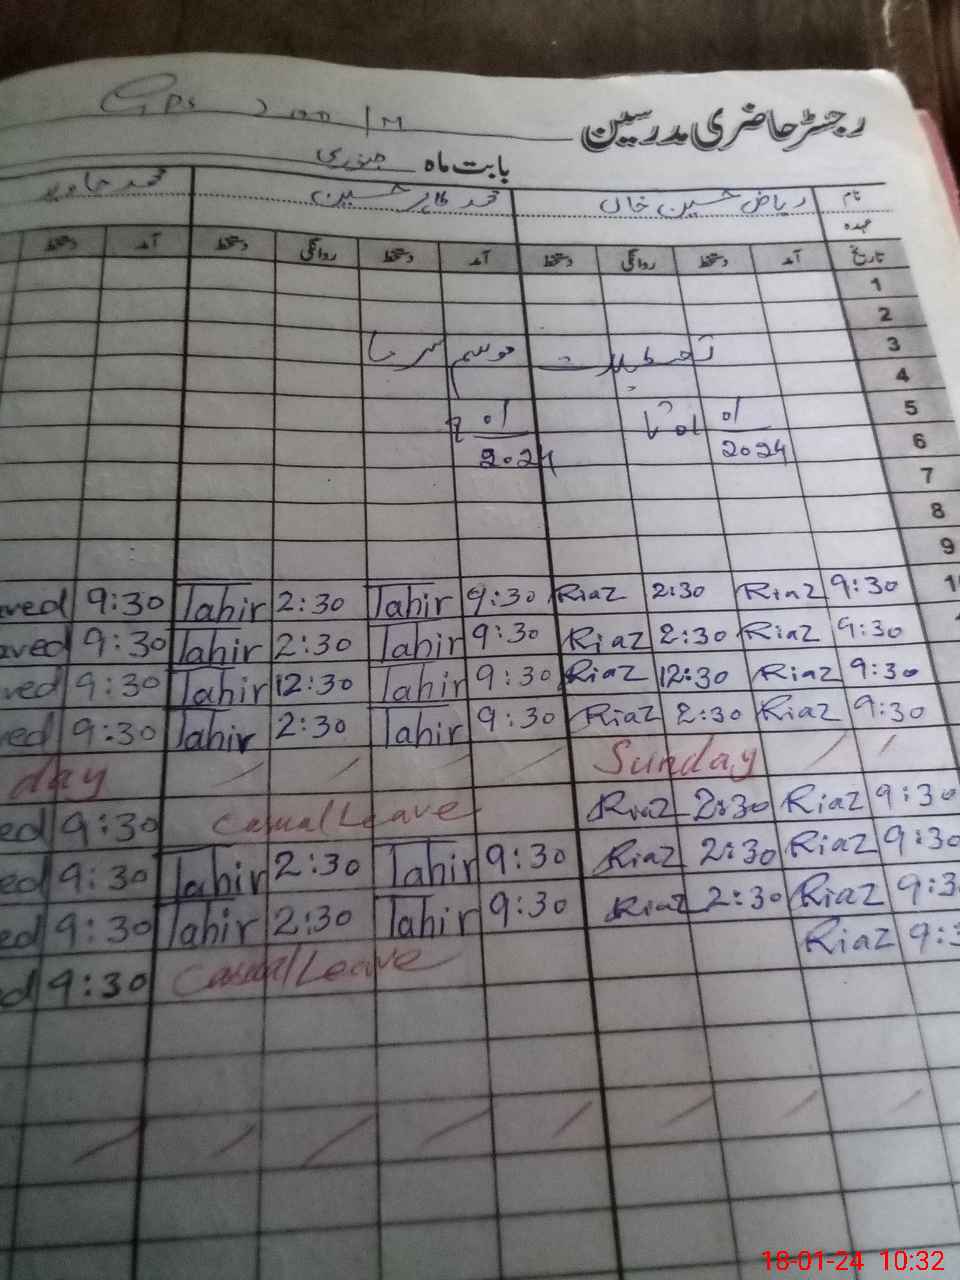 رجسٹر حاضری مدرسین GPS
بابت ماہ جنوری
نام ریاض حسین خان محمد طاہر حسین محمد جاوید
عہدہ
تاریخ آمد دستخط روانگی دستخط آمد دستخط روانگی دستخط آمد دستخط
1
2
3 تعطیلات موسم سرما
4
5
6 2024 2024
7
8
9
9:30 Tahir 2:30 Tahir 9:30 Riaz 2:30 Riaz 9:30
9:30 Tahir 2:30 Tahir 9:30 Riaz 2:30 Riaz 9:30
9:30 Tahir 12:30 Tahir 9:30 Riaz 12:30 Riaz 9:30
9:30 Tahir 2:30 Tahir 9:30 Riaz 2:30 Riaz 9:30
day Sunday
9:30 Casual Leave Riaz 2:30 Riaz 9:30
9:30 Tahir 2:30 Tahir 9:30 Riaz 2:30 Riaz 9:30
9:30 Tahir 2:30 Tahir 9:30 Riaz 2:30 Riaz 9:3
9:30 Casual Leave Riaz 9:3
18-01-24 10:32